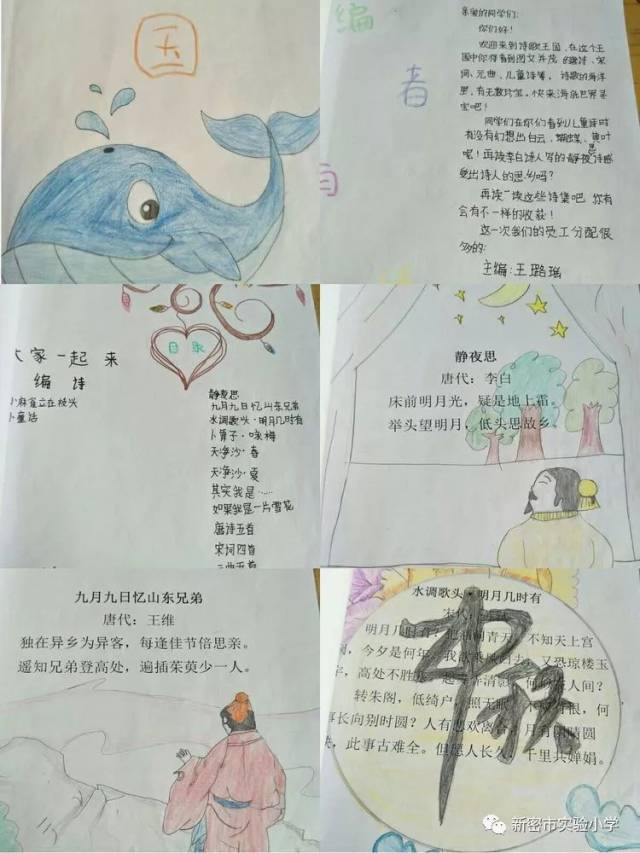 国
编
者
亲爱的同学们:
你们好!
欢迎来到诗歌王国,在这个王
国中你将看到图文并茂的唐诗、宋
词、元曲、儿童诗等,诗歌的海洋
里,有无数珍宝,快来海底世界寻
宝吧!
同学们在你们看到儿童诗时
有没有幻想出白云、蝴蝶、黄叶
呢!再读李白诗人写的静夜诗感
觉出诗人的思乡吗?
再读一读这些诗集吧你有
会有不一样的收获!
这一次我们的员工分配很
多的:
主编:王璐瑶
大家一起来
编诗
小麻雀立在枝头
目录
静夜思
九月九日忆山东兄弟
水调歌头·明月几时有
卜算子·咏梅
天净沙·春
天净沙·夏
其实我是……
如果我是一片雪花
唐诗五首
宋词四首
静夜思
唐代:李白
床前明月光,疑是地上霜。
举头望明月,低头思故乡。
九月九日忆山东兄弟
唐代:王维
独在异乡为异客,每逢佳节倍思亲。
遥知兄弟登高处,遍插茱萸少一人。
水调歌头·明月几时有
宋代
明月几时有?把酒问青天。不知天上宫
阙,今夕是何年。我欲乘风归去,又恐琼楼玉
宇,高处不胜寒。起舞弄清影,何似在人间?
转朱阁,低绮户,照无眠。不应有恨,何
事长向别时圆?人有悲欢离合,月有阴晴圆
缺,此事古难全。但愿人长久,千里共婵娟。
中秋
新密市实验小学